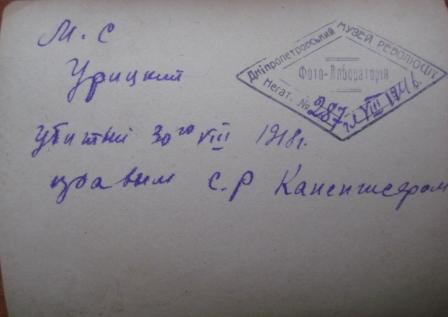 М. С
Урицкий
убитый 30го VIII 1918 г.
правым с.р Канегисером
Дніпропетровський МУЗЕЙ РЕВОЛЮЦІЇ
Фото-Лабораторія
Негат. №
287